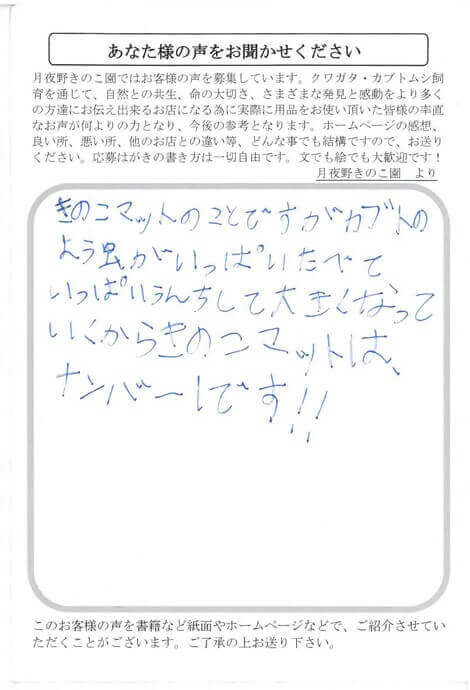 あなた様の声をお聞かせください
月夜野きのこ園ではお客様の声を募集しています。クワガタ・カブトムシ飼
育を通じて、自然との共生、命の大切さ、さまざまな発見と感動をより多く
の方達にお伝え出来るお店になる為に実際に用品をお使い頂いた皆様の率直
なお声が何よりの力となり、今後の参考となります。ホームページの感想、
良い所、悪い所、他のお店との違い等、どんな事でも結構ですので、お送り
ください。応募はがきの書き方は一切自由です。文でも絵でも大歓迎です！
月夜野きのこ園　より
きのこマットのことですがカブトの
よう虫がいっぱいたべて
いっぱいうんちして大きくなって
いくからきのこマットは、
ナンバー1です!!
このお客様の声を書籍など紙面やホームページなどで、ご紹介させてい
ただくことがございます。ご了承の上お送り下さい。